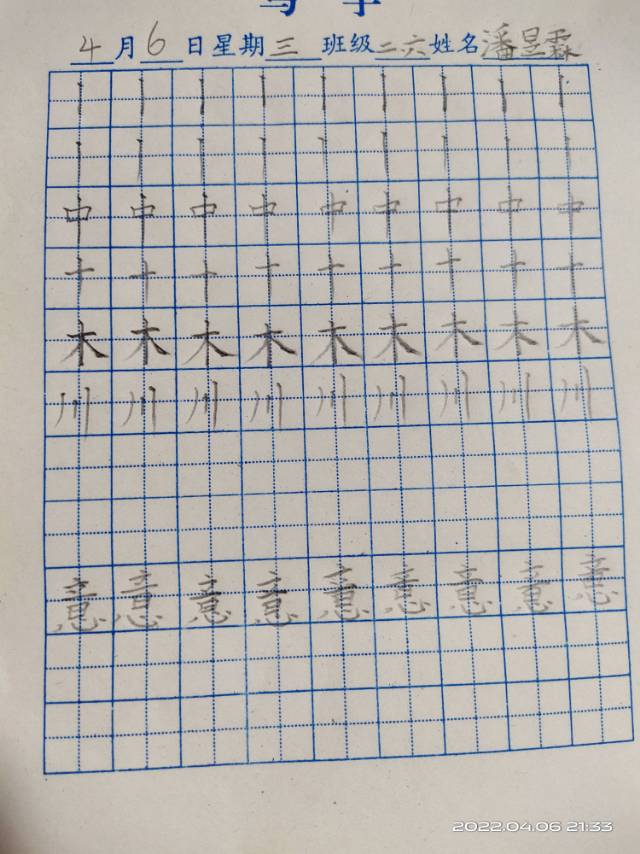 写字
4月6日星期三班级二六姓名潘昱霖
丨丨丨丨丨丨丨丨丨
丨丨丨丨丨丨丨丨丨
中中中中中中中中中
十十十十十十十十十
木木木木木木木木木
川川川川川川川川川
意意意意意意意意意
2022.04.06 21:33